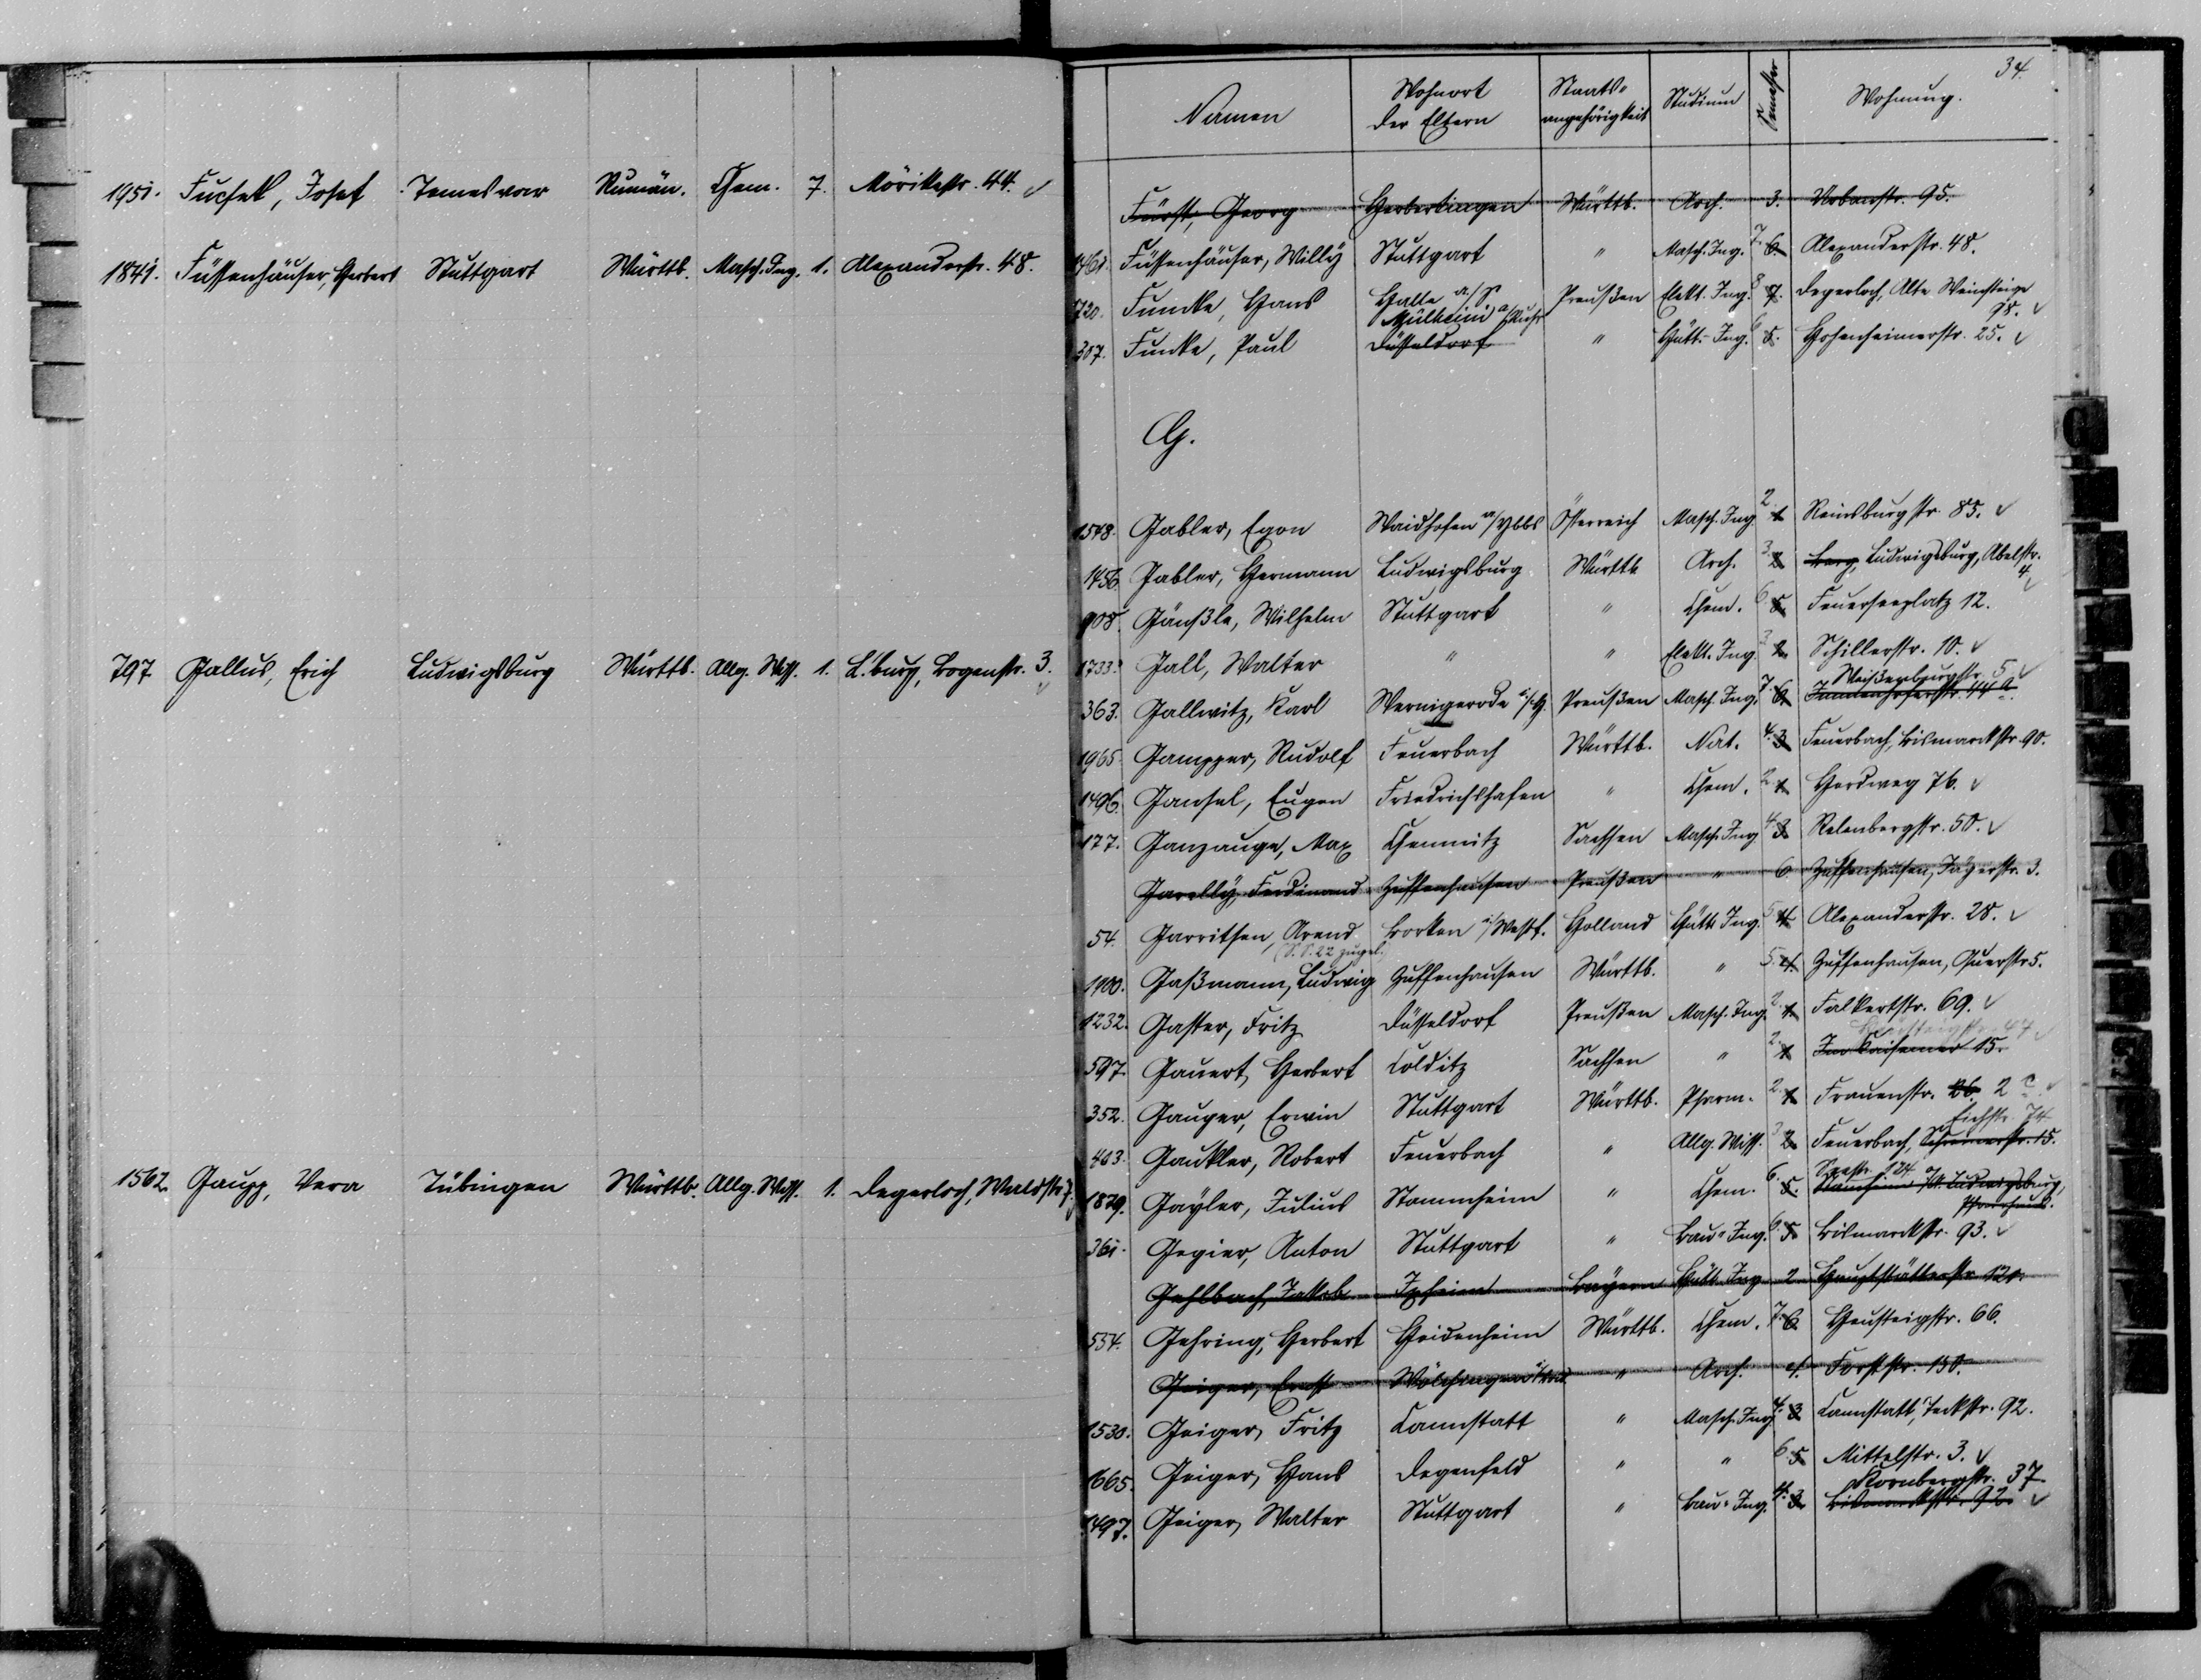 1951. Fucsek, Josef Temesvar Rumän. Chem. 7. Mörikestr. 44.
1841. Füssenhäuser, Herbert Stuttgart Württb. Masch. Ing. 1. Alexanderstr. 48.
797 Gallus, Erich Ludwigsburg Württb. Allg. Wiss. 1. L'burg, Bogenstr. 3.
1562. Gaupp, Vera Tübingen Württb. Allg. Wiss. 1. Degerloch, Waldstr. 7.
34.
Namen Wohnort der Eltern Staats-angehörigkeit Studium Semester Wohnung.
Fürst, Georg Herbertingen Württb. Arch. 3. Urbanstr. 95.
1461. Füssenhäuser, Willy Stuttgart " Masch. Ing. 7. 6. Alexanderstr. 48.
1720. Funcke, Hans Halle a/S. Preußen Elekt. Ing. 8 7. Degerloch, Alte Weinsteige 98.
Mülheim a/Ruhr
307. Funke, Paul Düsseldorf " Hütt. Ing. 6 5. Hohenheimerstr. 25.
G.
1548. Gabler, Egon Waidhofen a/Ybbs Österreich Masch. Ing. 2 1 Reinsburgstr. 85.
1456. Gabler, Hermann Ludwigsburg Württb. Arch. 3. 2 Berg, Ludwigsburg, Abelstr. 4.
908. Gänßle, Wilhelm Stuttgart " Chem. 6 5. Feuerseeplatz 12.
1733. Gall, Walter " " Elekt. Ing. 3 2. Schillerstr. 10.
Weißenburgstr. 5
363. Gallwitz, Karl Wernigerode a/H. Preußen Masch. Ing. 7. 6. Immenhoferstr. 44 A.
1965. Gampper, Rudolf Feuerbach Württb. Nat. 4. 3 Feuerbach, Bismarckstr. 90.
1496. Gansel, Eugen Friedrichshafen " Chem. 2. 1 Herdweg 76.
177. Ganzauge, Max Chemnitz Sachsen Masch. Ing. 4. 3 Relenbergstr. 50.
Garelly, Ferdinand Zuffenhausen Preußen " 6 Zuffenhausen, Jägerstr. 3.
54. Garritsen, Arend Borken i/Westf. Holland Hütt. Ing. 5. 4 Alexanderstr. 28.
(S.S. 22 zugel.
1900. Gaßmann, Ludwig Zuffenhausen Württb. " 5. 4. Zuffenhausen, Querstr. 5.
1232. Gaster, Fritz Düsseldorf Preußen Masch. Ing. 2. 1 Falkertstr. 69.
597. Gauert, Herbert Colditz Sachsen " 2. 1 Im Kaisemer 15.
352. Gauger, Erwin Stuttgart Württb. Pharm. 2. 1 Frauenstr. 26. 2 c.
Eichstr. 74
403. Gaukler, Robert Feuerbach " Allg. Wiss. 3 2. Feuerbach, Schreinerstr. 15.
1879. Gayler, Julius Stammheim " Chem. 6. 5. Stammheim O/A. Ludwigsburg, Pfarrhaus.
361. Gegier, Anton Stuttgart " Bau-Ing. 6. 5 Bismarckstr. 93.
Gehlbach, Jakob Ixheim Bayern Hütt. Ing. 2 Hauptstätterstr. 121.
534. Gehring, Herbert Heidenheim Württb. Chem. 7. 6. Heusteigstr. 66.
Geiger, Ernst " Arch. 4. Forststr. 150.
1530. Geiger, Fritz Cannstatt " Masch. Ing. 4. 3 Cannstatt, Teckstr. 92.
1665. Geiger, Hans Degenfeld " " 6. 5 Mittelstr. 3.
Kornbergstr. 37
1497. Geiger, Walter Stuttgart " Bau-Ing. 4. 3. Bismarckstr. 92.
G